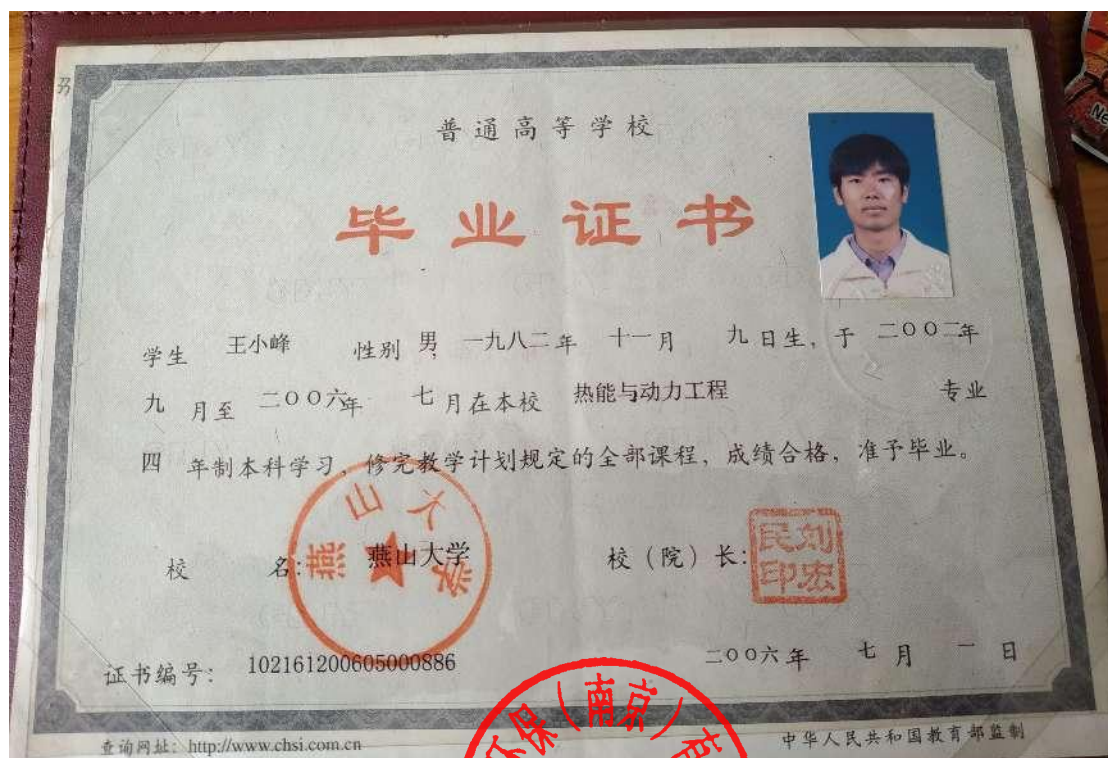 普通高等学校
毕业证书
学生 王小峰 性别 男 一九八二年 十一月 九日生，于 二〇〇二年
九 月至 二〇〇六年 七月在本校 热能与动力工程 专业
四 年制本科学习，修完教学计划规定的全部课程，成绩合格，准予毕业。
燕山大学
校 名：燕山大学 校（院）长：
刘宏民印
证书编号：102161200605000886 二〇〇六年 七月 一日
环保（南京）有
查询网址：http://www.chsi.com.cn 中华人民共和国教育部监制